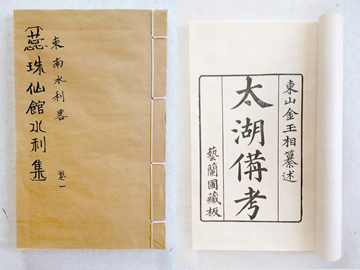 東南水利畧 卷一
〔蕊珠仙館水利集〕
東山金玉相纂述
太湖備考
藝蘭圃藏板